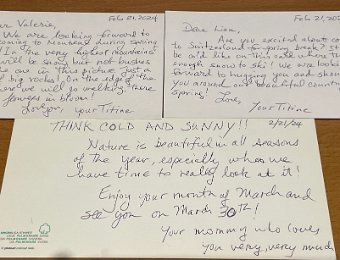 Feb. 21, 2024
Valerie,
We are looking forward to
coming to Montreux during spring
In the very highest mountains
will be snow but not bushes
one in this picture, just a
big rocks, on the edge of the
here we will go walking there
flowers in bloom!
Love you, your Titine
Feb 21, 202
Dear Liam,
Are you excited about co
to Switzerland for spring break? It
be cold like on this card where th
enough snow to ski! We are look
forward to hugging you and show
you around our beautiful count
Spring! Love,
Your Titine
THINK COLD AND SUNNY!! 2/21/24
Nature is beautiful in all seasons
of the year, especially when we
have time to really look at it!
Enjoy your month of March and
see you on March 30TH!
Your mommy who loves
you very, very much